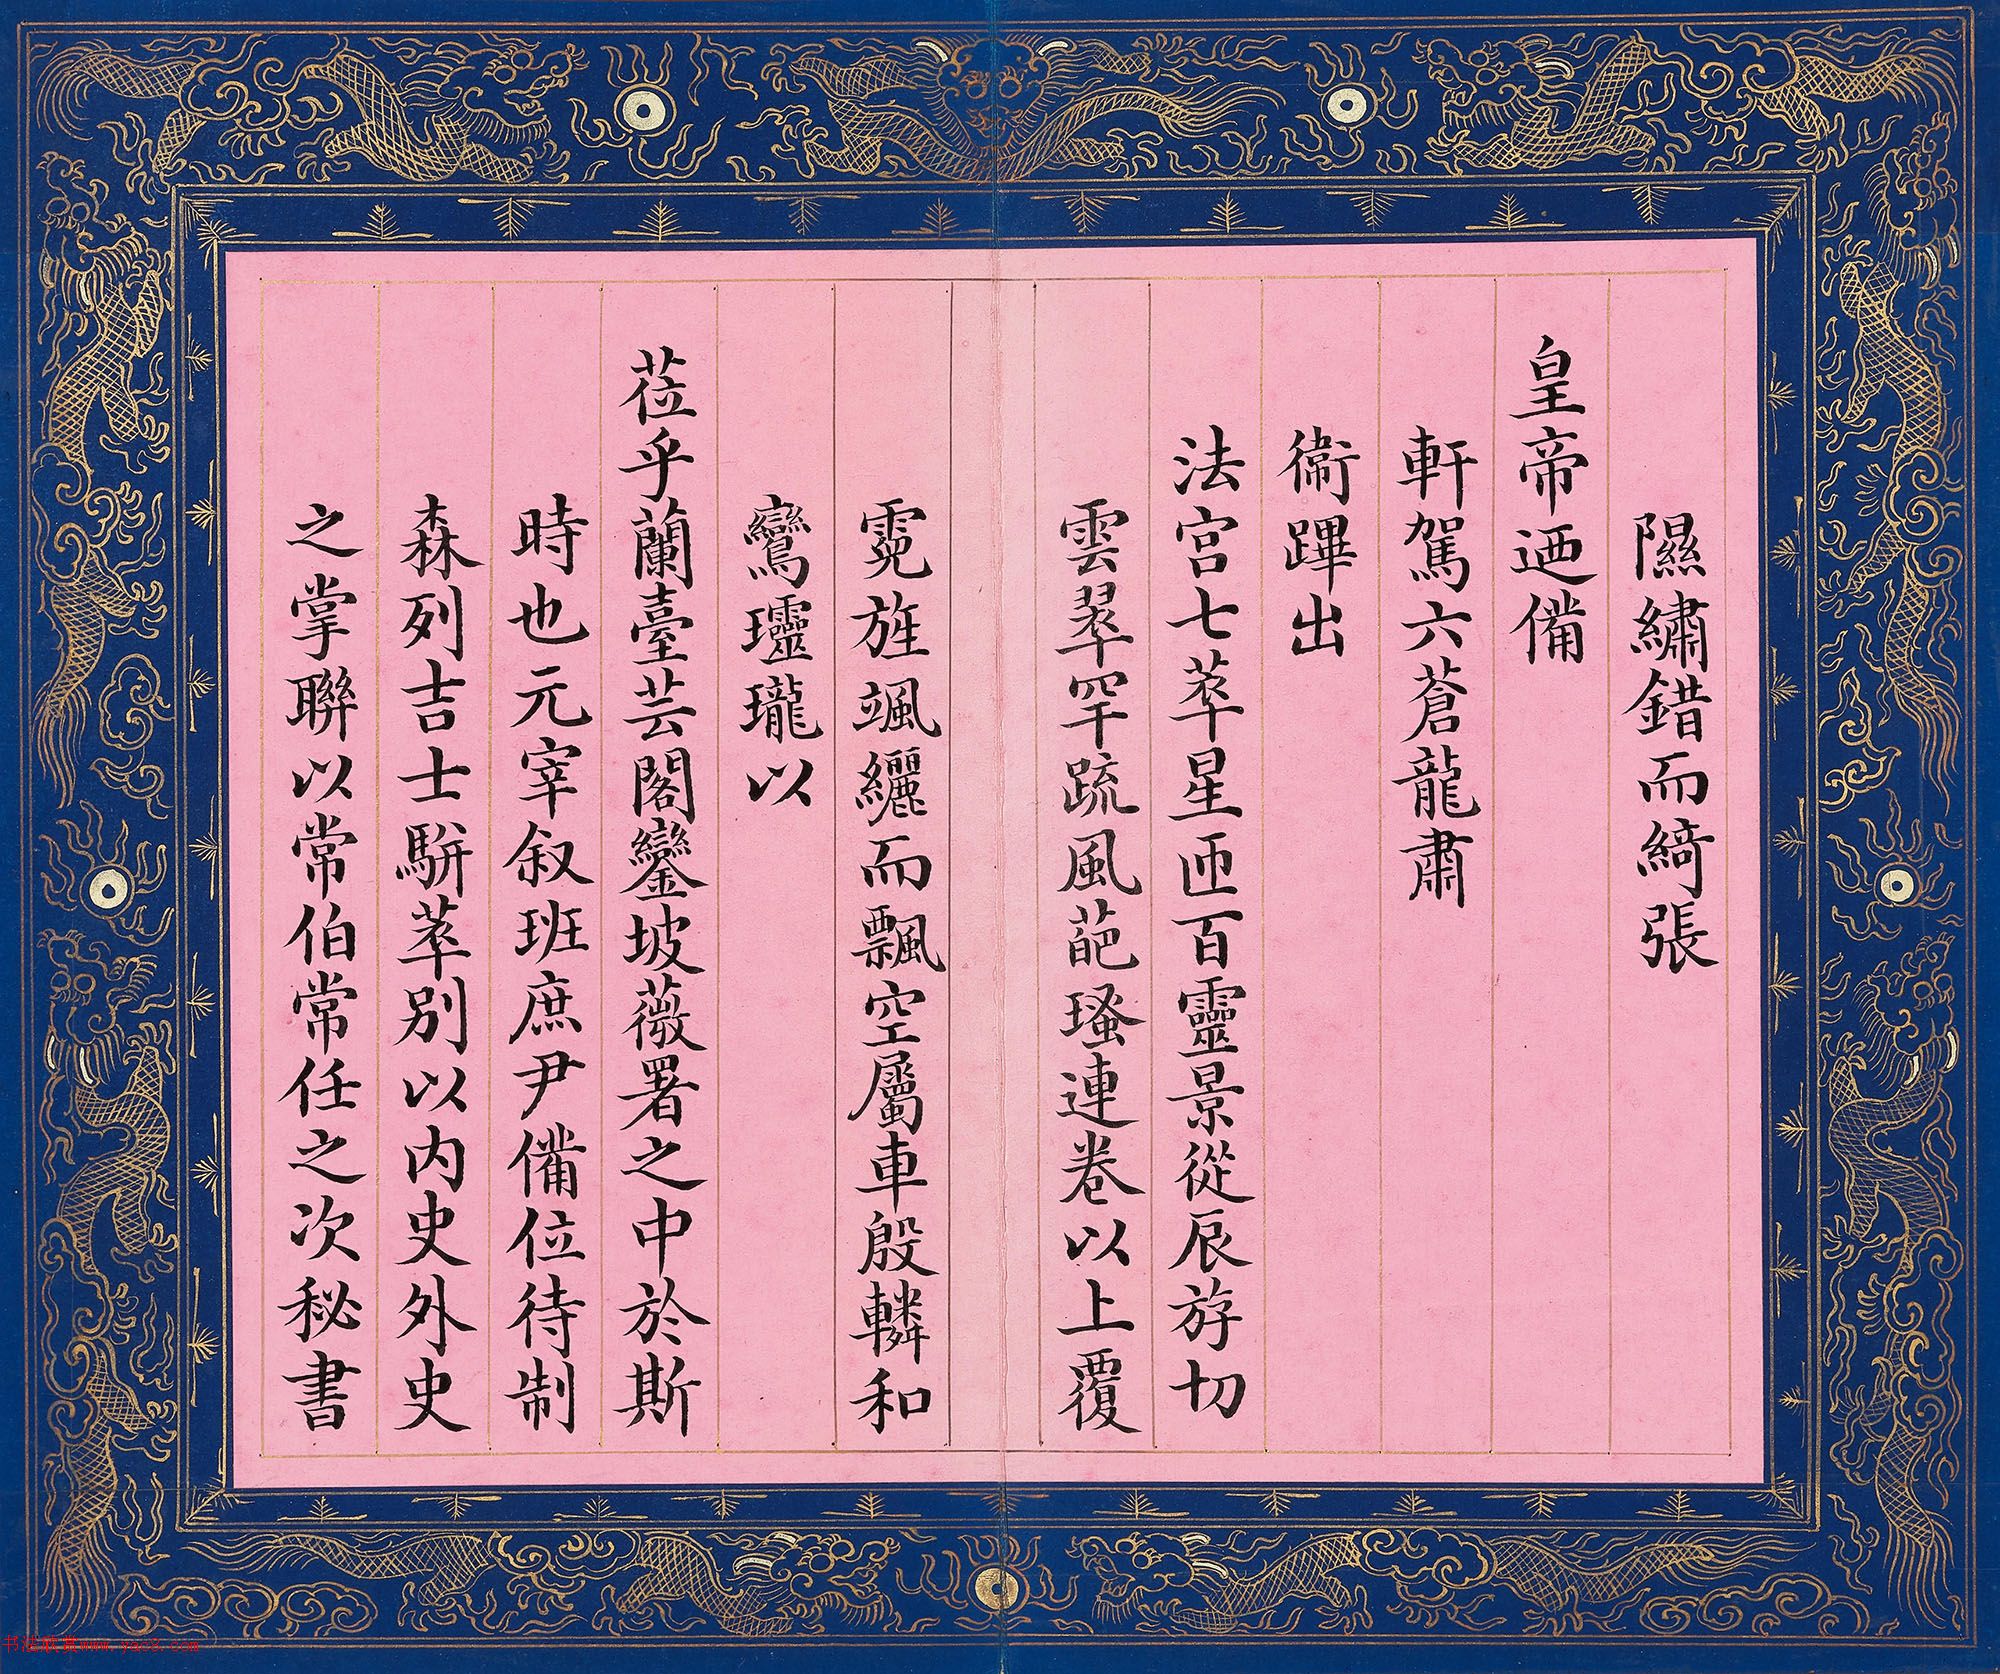 隰繡錯而綺張
皇帝迺備
軒駕六蒼龍肅
衞蹕出
法宮七萃星匝百靈景從辰斿切
雲翠罕疏風葩瑵連卷以上覆
霓旌颯纚而飄空屬車殷轔和
鸞瓏以
莅乎蘭臺芸閣鑾坡薇署之中於斯
時也元宰叙班庶尹備位待制
森列吉士駢萃別以内史外史
之掌聯以常伯常任之次秘書